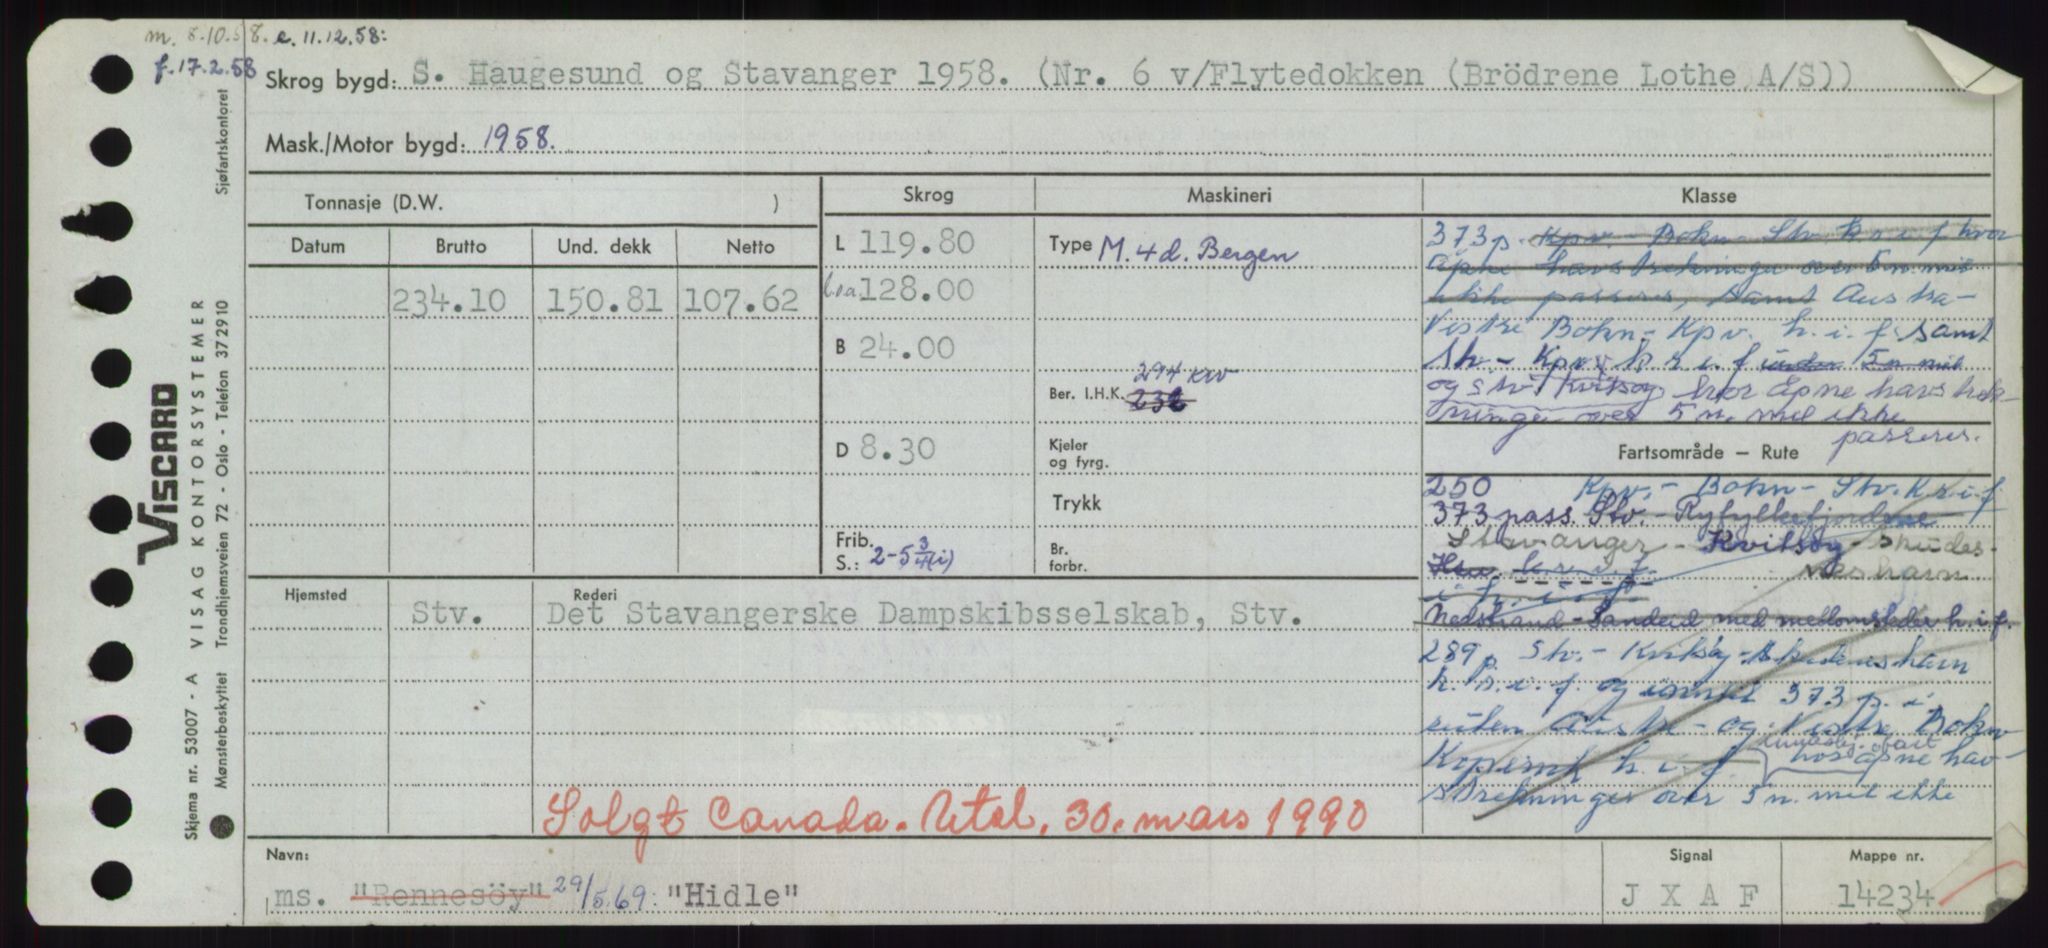 m. 8.10.58. e. 11.12.58:
f. 17.2.58
Skrog bygd: S. Haugesund og Stavanger 1958. (Nr. 6 v/Flytedokken (Brödrene Lothe A/S))
Mask./Motor bygd: 1958.
Tonnasje (D.W. )
Skrog
Maskineri
Klasse
Datum Brutto Und. dekk Netto
234.10 150.81 107.62
L 119.80
l.o.a. 128.00
B 24.00
D 8.30
Frib.
S.: 2-5 3/4(i)
Type M. 4d. Bergen
294 KW
Ber. I.H.K. 232
Kjeler
og fyrg.
Trykk
Br.
forbr.
373 p. Kpv. - Bokn - Stv. k.r.i.f. hvor
åpne havstrekninger over 5 n. mil
ikke passeres, samt Austre-
Vestre Bokn - Kpv. h.i.f. samt
Stv - Kpv k r i f under 5 n mil
og Stv - Kvitsøy hvor åpne havstrek-
ninger over 5 n. mil ikke
passeres.
Fartsområde – Rute
250 Kpv. - Bokn - Stv. k r i f
373 pass. Stv. - Ryfylkefjordene
Stavanger - Kvitsøy - Skudes-
neshavn
i h. i f.
Nedstrand - Sandeid med mellomsteder h.i.f.
289 p. Stv. - Kvitsøy - Skudeneshavn
k. r. i. f. og inntil 373 p. i
ruten Austre - og Vestre Bokn
Kopervik h. i. f. hvor åpne hav-
strekninger over 5 n. mil ikke
Hjemsted Stv.
Rederi Det Stavangerske Dampskibsselskab, Stv.
Solgt Canada. Utsl. 30. mars 1990
Navn:
ms. "Rennesöy" 29/5.69: "Hidle"
Signal
J X A F
Mappe nr.
14234
Sjøfartskontoret
VISCARD
VISAG KONTORSYSTEMER
Trondhjemsveien 72 - Oslo - Telefon 372910
Skjema nr. 53007 - A
Mønsterbeskyttet